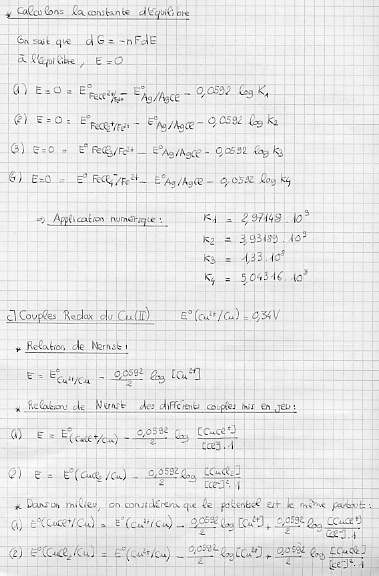 * Calculons la constante d'équilibre
On sait que dG = -nFdE
à l'équilibre, E = 0
(1) E = 0 = E° FeCl²⁺/Fe²⁺ - E° Ag/AgCl - 0,0592 log K1
(2) E = 0 = E° FeCl2⁺/Fe²⁺ - E° Ag/AgCl - 0,0592 log K2
(3) E = 0 = E° FeCl3/Fe²⁺ - E° Ag/AgCl - 0,0592 log K3
E = 0 = E° FeCl4⁻/Fe²⁺ - E° Ag/AgCl - 0,0592 log K4
⇒ Application numérique :
K1 = 2,97149 . 10⁹
K2 = 3,93189 . 10⁹
K3 = 1,33 . 10⁹
K4 = 5,04316 . 10⁸
c) Couples Redox du Cu(II) E°(Cu²⁺/Cu) = 0,34V
* Relation de Nernst :
E = E° Cu²⁺/Cu - 0,0592/2 log [Cu²⁺]
* Relations de Nernst des différents couples mis en jeu :
(1) E = E°(CuCl⁺/Cu) - 0,0592/2 log [CuCl⁺]/[Cl⁻].1
(2) E = E°(CuCl2/Cu) - 0,0592/2 log [CuCl2]/[Cl⁻]².1
* Dans un milieu, on considérera que le potentiel est le même partout :
(1) E°(CuCl⁺/Cu) = E°(Cu²⁺/Cu) - 0,0592/2 log [Cu²⁺] + 0,0592/2 log [CuCl⁺]/[Cl⁻].1
(2) E°(CuCl2/Cu) = E°(Cu²⁺/Cu) - 0,0592/2 log [Cu²⁺] + 0,0592/2 log [CuCl2]/[Cl⁻]².1